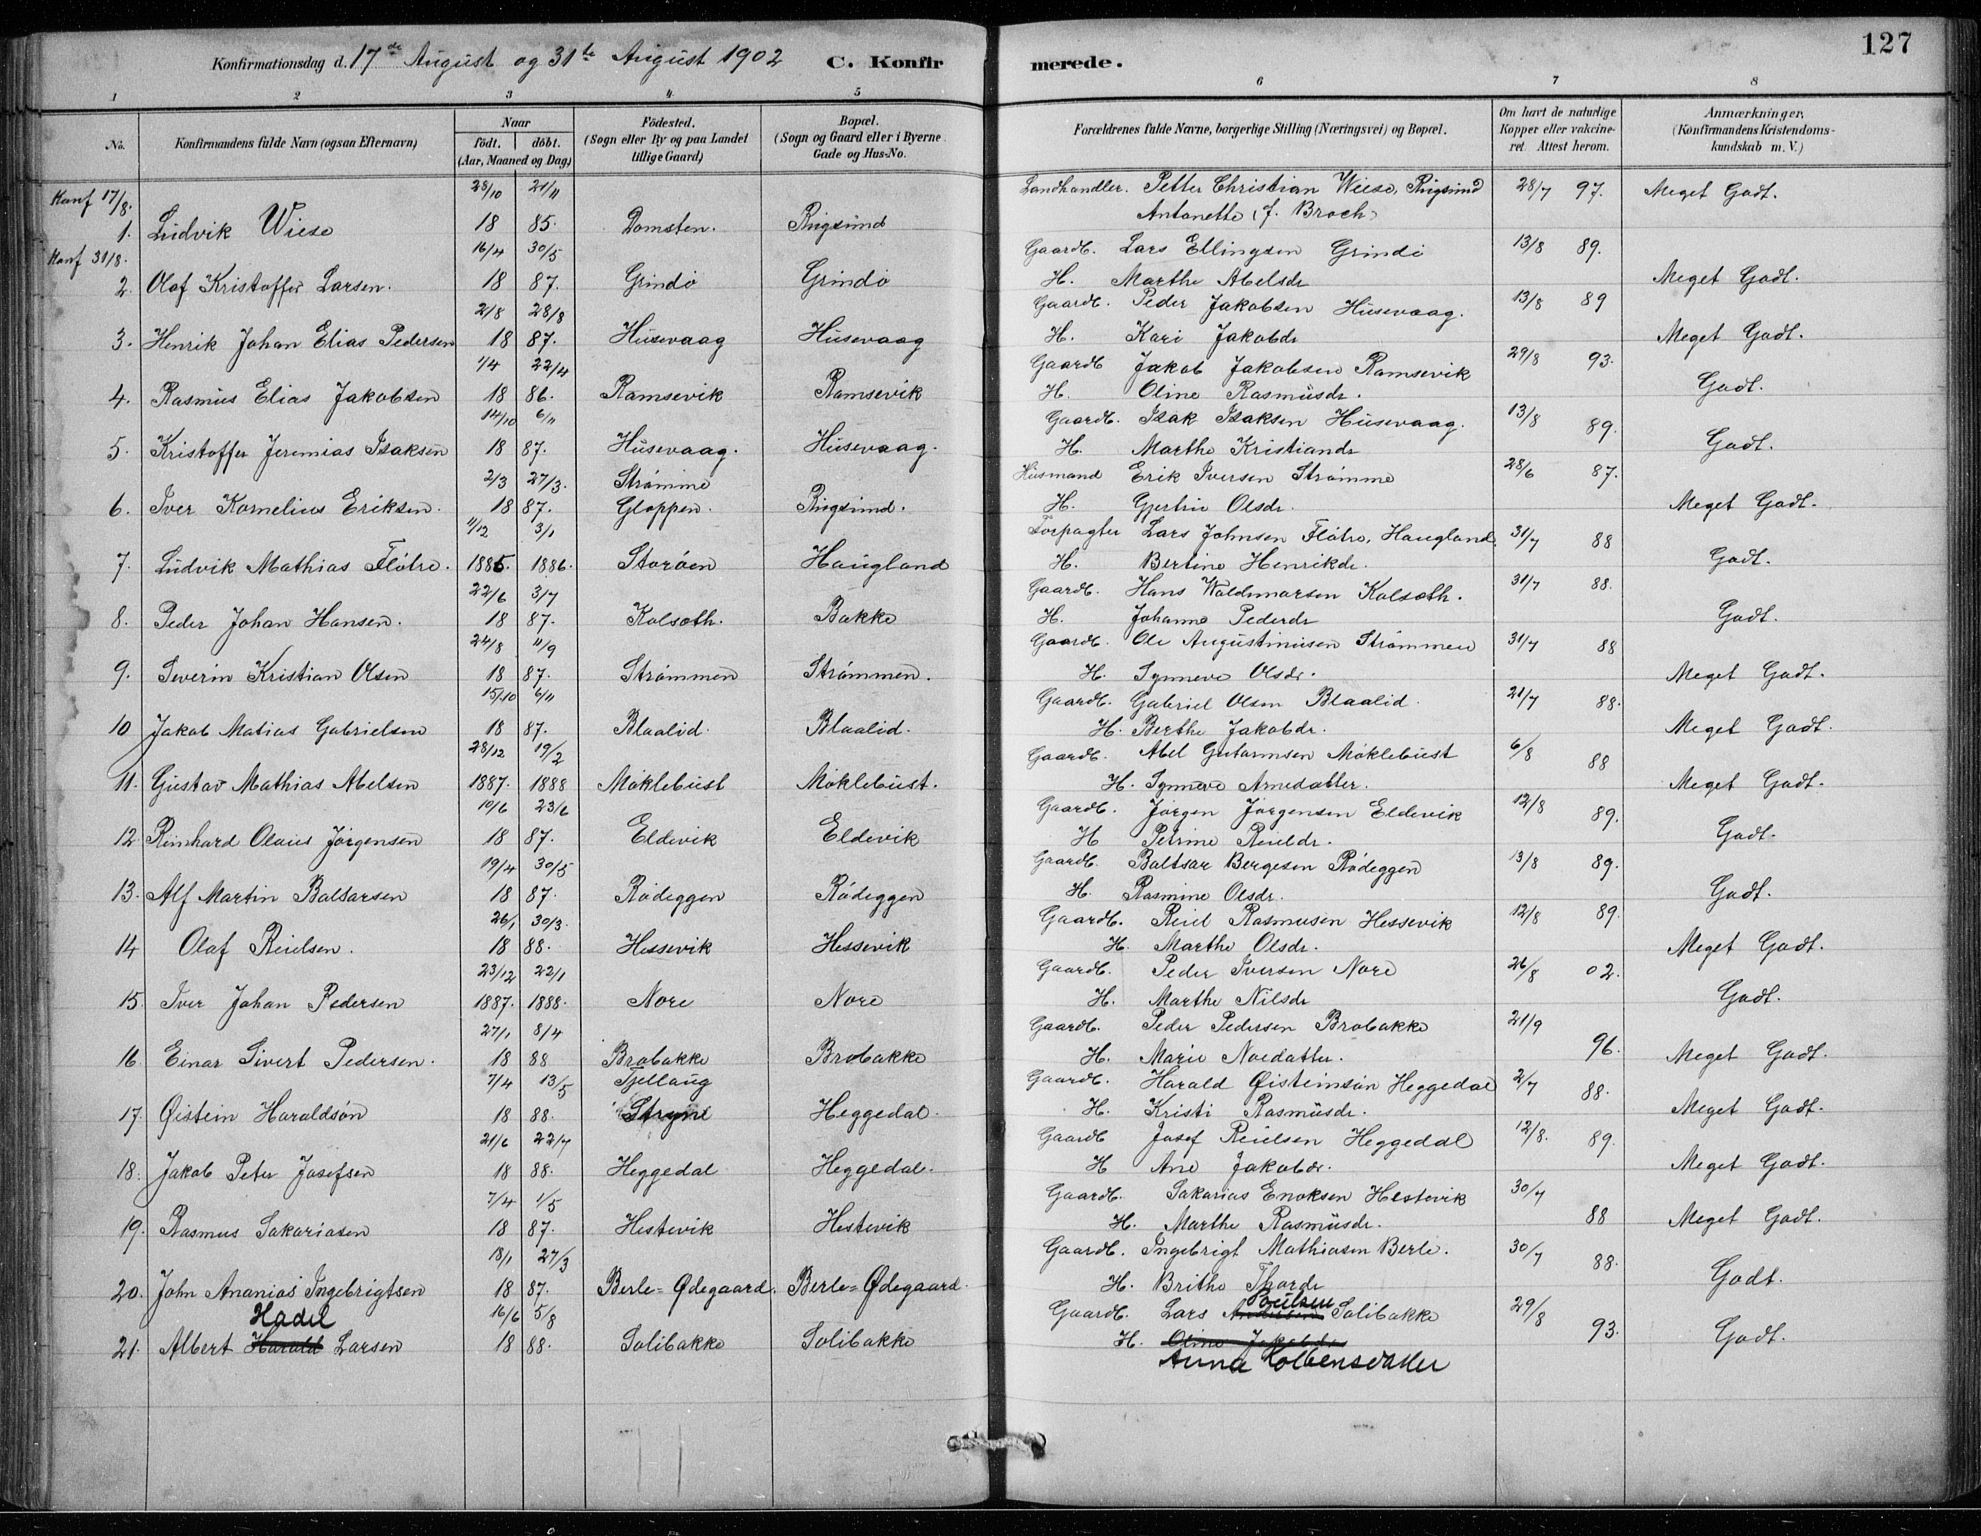 Konfirmationsdag d. 17de August og 31te August 1902 C. Konfirmerede. 127
1 2 3 4 5 6 7 8
No. Konfirmandens fulde Navn (ogsaa Efternavn) Naar födt. döbt. (Aar, Maaned og Dag) Födested. (Sogn eller By og paa Landet tillige Gaard) Bopæl. (Sogn og Gaard eller i Byerne Gade og Hus-No. Forældrenes fulde Navne, borgerlige Stilling (Næringsvei) og Bopæl. Om havt de naturlige Kopper eller vakcineret. Attest herom. Anmærkninger. (Konfirmandens Kristendomskundskab m. V.)
Konf 17/8. 28/10 21/11 Landhandler. Petter Christian Wiese, Rugsund 28/7 97. Meget Godt.
1. Ludvik Wiese 18 85. Domsten. Rugsund Antonette (f. Broch)
Konf 31/8. 16/4 30/5 Gaardb. Lars Ellingsen Grindö 13/8 89.
2. Olaf Kristoffer Larsen. 18 87. Grindö Grindö H. Marthe Abelsdr Meget Godt.
21/8 28/8 Gaardb. Peder Jakobsen Husevaag. 13/8 89
3. Henrik Johan Elias Pedersen 18 87. Husevaag Husevaag H. Kari Jakobdr Meget Godt.
1/4 22/4 Gaardb Jakob Jakobsen Ramsevik 29/8 93.
4. Rasmus Elias Jakobsen 18 86. Ramsevik Ramsevik H. Oline Rasmusdr. Godt.
14/10 6/11 Gaardb. Isak Isaksen Husevaag. 13/8 89.
5. Kristoffer Jeremias Isaksen 18 87. Husevaag. Husevaag. H. Marthe Kristiandr Godt.
2/3 27/3. Strömme Husmand Erik Iversen Strömme 28/6 87.
6. Iver Kornelius Eriksen. 18 87. Gloppen. Rugsund. H. Gjertrue Olsdr. Meget Godt.
11/12 3/1 Forpagter Lars Johnsen Flötre, Haugland. 31/7 88
7. Ludvik Mathias Flötre. 1885. 1886. Storöen Haugland H. Bertine Henrikdr. Godt.
22/6 3/7 Gaardb. Hans Waldemarsen Kolsæth. 31/7 88.
8. Peder Johan Hansen. 18 87. Kolsæth. Bakke H. Johanne Pederdr Godt.
24/8 11/9 Gaardb. Ole Augustinusen Strömmen 31/7 88
9. Severin Kristian Olsen 18 87. Strömmen Strömmen. H. Synneve Olsdr. Meget Godt.
15/10 6/11 Gaardb. Gabriel Olsen Blaalid. 21/7 88.
10 Jakob Matias Gabrielsen 18 87. Blaalid. Blaalid. H. Berthe Jakobdr. Meget Godt.
28/12 19/2 Gaardb. Abel Gutormsen Möklebust 6/8 88
11. Gustav Mathias Abelsen 1887. 1888 Möklebust Möklebust. H. Synneve Arnedatter. Meget Godt.
10/6 23/6 Gaardb. Jörgen Jörgensen Eldevik 12/8 89.
12 Reinhard Olaus Jörgensen 18 87. Eldevik Eldevik H Petrine Reieldr. Godt.
19/4 30/5 Gaardb. Baltsar Bergesen Rödeggen 13/8 89.
13. Alf Martin Baltsarsen 18 87. Rödeggen Rödeggen H. Rasmine Olsdr. Godt.
26/1 30/3. Gaardb. Reiel Rasmusen Hessevik 12/8 89.
14 Olaf Reielsen. 18 88. Hessevik Hessevik H. Marthe Olsdr. Meget Godt.
23/12 22/1 Gaardb. Peder Iversen Nore 26/8 02.
15. Iver Johan Pedersen 1887. 1888. Nore Nore H. Marthe Nilsdr Godt.
27/1 8/4 Gaardb. Peder Pedersen Brobakke 21/9 96.
16. Einar Sivert Pedersen. 18 88 Brobakke Brobakke H. Marie Noedatter. Meget Godt.
7/4 13/5 Tjellaug Gaardb. Harald Øisteinsön Heggedal 2/7 88.
17. Øistein Haraldsön 18 88. Stryne Heggedal. H. Kristi Rasmusdr. Meget Godt.
21/6 22/7 Gaardb Josef Reielsen Heggedal 12/8. 89.
18. Jakob Peter Josefsen 18 88. Heggedal Heggedal. H Ane Jakobdr. Meget Godt.
7/4 1/5 Gaardb. Sakarias Enoksen Hestevik 30/7 88
19. Rasmus Sakariasen 18 87. Hestevik Hestevik H. Marthe Rasmusdr. Meget Godt.
18/1 27/3 Gaardb. Ingebrigt Mathiasen Berle. 30/7 88.
20. John Ananias Ingebrigtsen 18 87. Berle=Ødegaard. Berle=Ødegaard. H. Brithe Thordr Godt.
Hadel 16/6 5/8 Gaardb. Lars Andersen Poulsen Solibakke 29/8 93.
21. Albert Harald Larsen 18 88. Solibakke Solibakke H. Oline Jakobdr Godt.
Anna Kolbensdatter